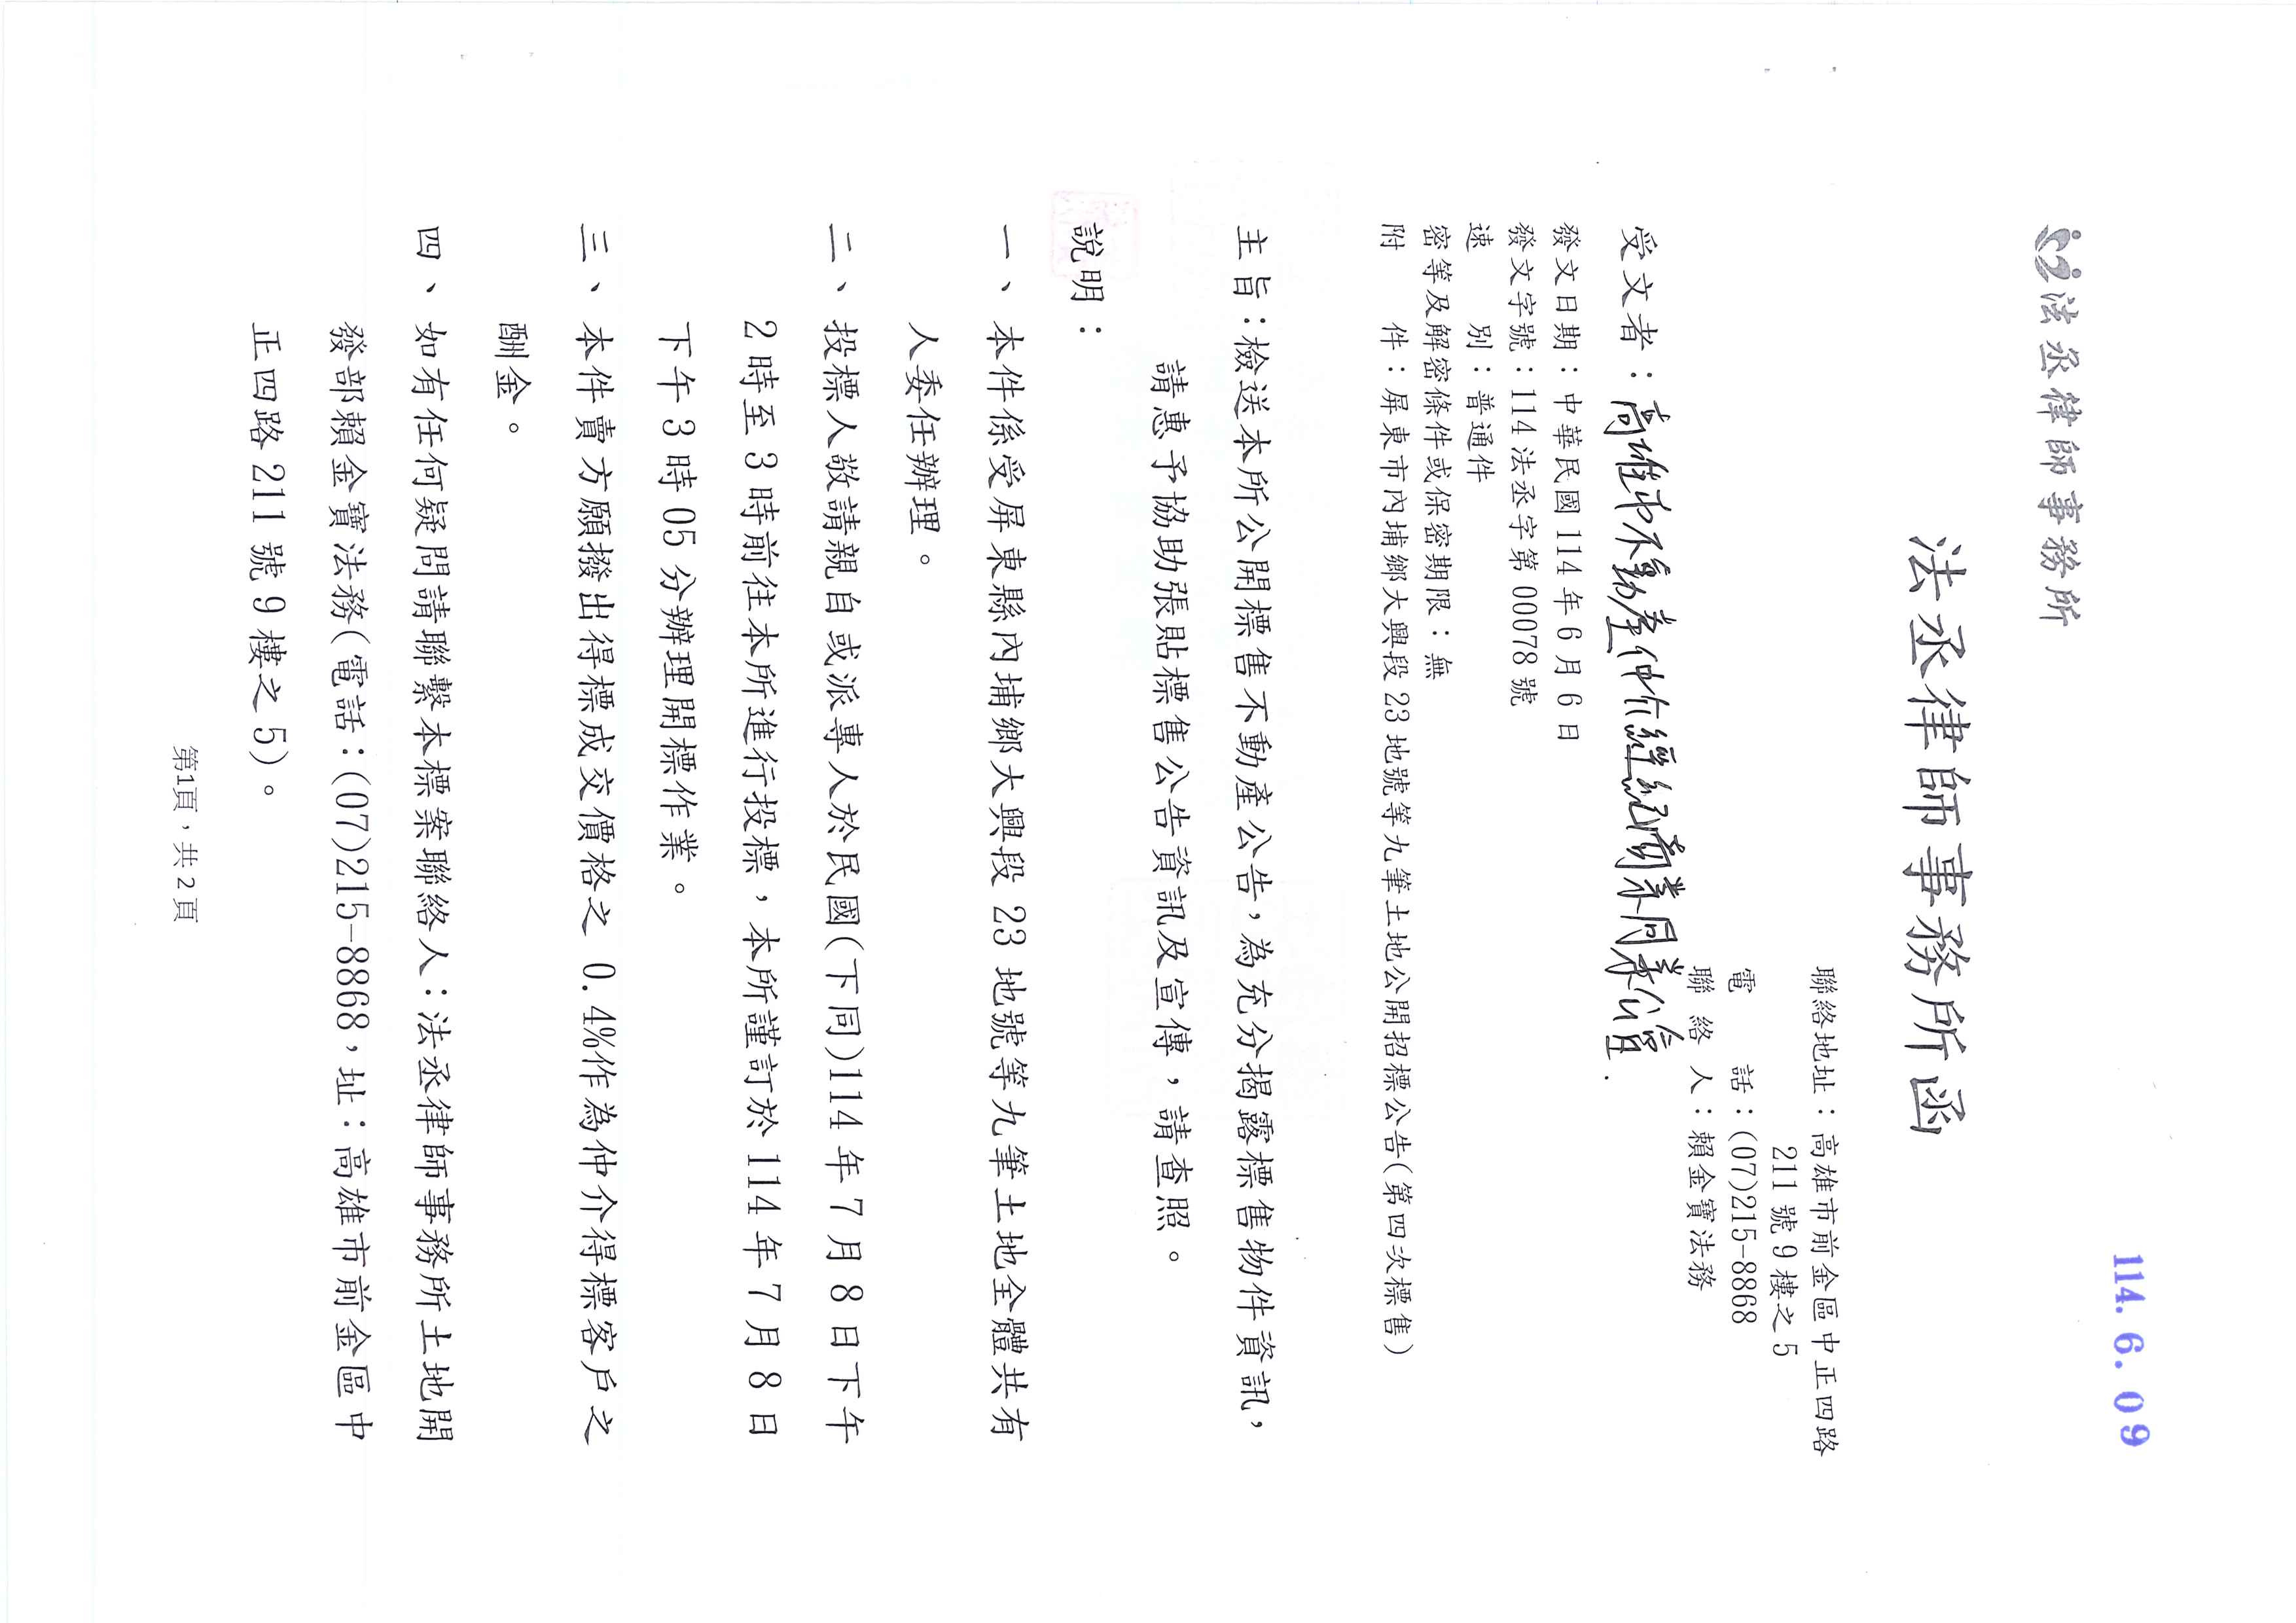 114. 6. 09
法丞律師事務所
法丞律師事務所函
聯絡地址：高雄市前金區中正四路
211 號 9 樓之 5
電　　話：(07)215-8868
聯 絡 人：賴金寶法務
受文者：高雄市不動產仲介經紀商業同業公會
發文日期：中華民國 114 年 6 月 6 日
發文字號：114 法丞字第 00078 號
速　　別：普通件
密等及解密條件或保密期限：無
附　　件：屏東市內埔鄉大興段 23 地號等九筆土地公開招標公告(第四次標售)
主旨：檢送本所公開標售不動產公告，為充分揭露標售物件資訊，
請惠予協助張貼標售公告資訊及宣傳，請查照。
說明：
一、本件係受屏東縣內埔鄉大興段 23 地號等九筆土地全體共有
人委任辦理。
二、投標人敬請親自或派專人於民國(下同)114 年 7 月 8 日下午
2 時至 3 時前往本所進行投標，本所謹訂於 114 年 7 月 8 日
下午 3 時 05 分辦理開標作業。
三、本件賣方願撥出得標成交價格之 0.4%作為仲介得標客戶之
酬金。
四、如有任何疑問請聯繫本標案聯絡人：法丞律師事務所土地開
發部賴金寶法務(電話：(07)215-8868，址：高雄市前金區中
正四路 211 號 9 樓之 5)。
第1頁，共 2 頁